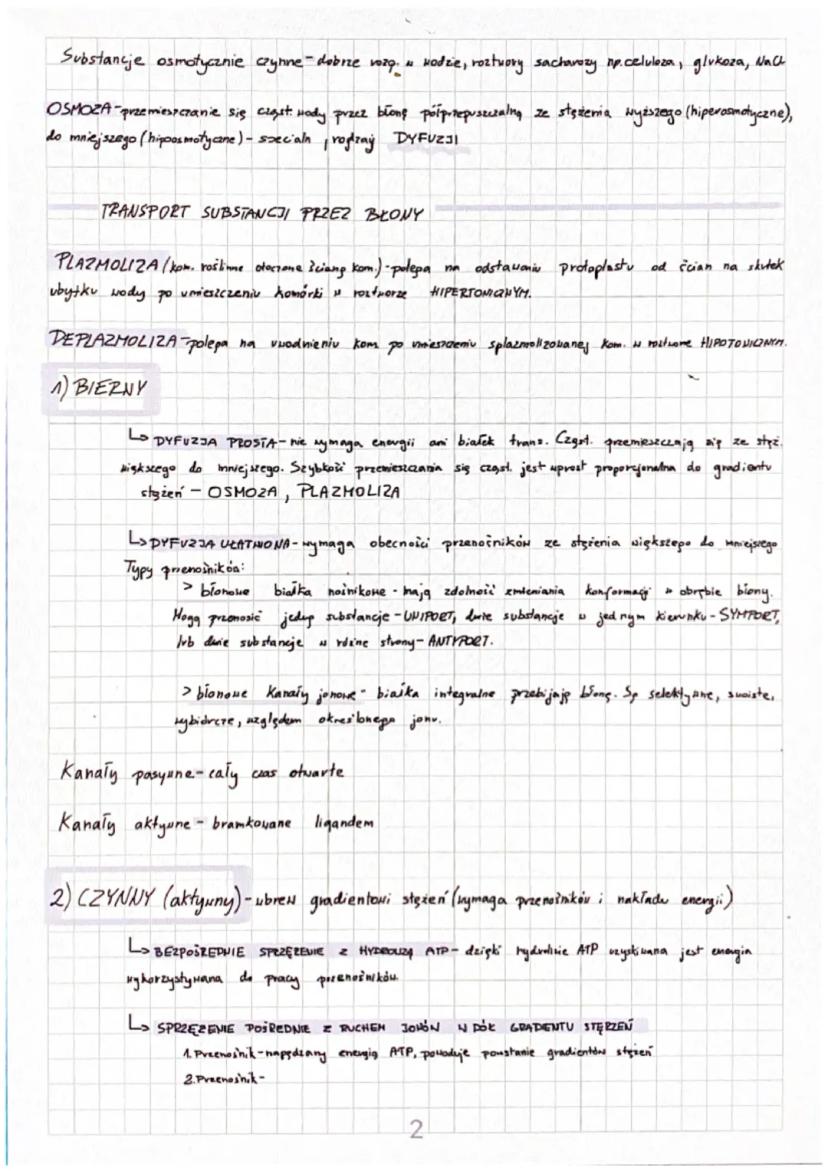 Substancje osmotycznie czynne - dobrze rozp. w wodzie, roztwory sacharozy np. celuloza, glukoza, NaCl
OSMOZA - przemieszczanie się cząst. wody przez błonę półprzepuszczalną ze stężenia wyższego (hiperosmotyczne),
do mniejszego (hipoosmotyczne) - specjaln , rodzaj DYFUZJI
TRANSPORT SUBSTANCJI PRZEZ BŁONY
PLAZMOLIZA (kom. roślinne otoczone ścianą kom.) - polega na odstawaniu protoplastu od ścian na skutek
ubytku wody po umieszczeniu komórki w roztworze HIPERTONICZNYM.
DEPLAZMOLIZA - polega na uwodnieniu kom po umieszczeniu splazmolizowanej kom. w roztworze HIPOTONICZNYM.
1) BIERNY
↳ DYFUZJA PROSTA - nie wymaga energii ani białek trans. Cząst. przemieszczają się ze stęż.
większego do mniejszego. Szybkość przemieszczania się cząst. jest wprost proporcjonalna do gradientu
stężeń - OSMOZA, PLAZMOLIZA
↳ DYFUZJA UŁATWIONA - wymaga obecności przenośników ze stężenia większego do mniejszego
Typy przenośników:
> błonowe białka nośnikowe - mają zdolność zmieniania konformacji w obrębie błony.
Mogą przenosić jedną substancje - UNIPORT, dwie substancje w jednym kierunku - SYMPORT,
lub dwie substancje w różne strony - ANTYPORT.
> błonowe kanały jonowe - białka integralne przebijają błonę. Są selektywne, swoiste,
wybiórcze, względem określonego jonu.
Kanały pasywne - cały czas otwarte
Kanały aktywne - bramkowane ligandem
2) CZYNNY (aktywny) - wbrew gradientowi stężeń (wymaga przenośników i nakładu energii)
↳ BEZPOŚREDNIE SPRZĘŻENIE Z HYDROLIZĄ ATP - dzięki hydrolizie ATP uzyskiwana jest energia
wykorzystywana do pracy przenośników.
↳ SPRZĘŻENIE POŚREDNIE Z RUCHEM JONÓW W DÓŁ GRADIENTU STĘRZEŃ
1. Przenośnik - napędzany energią ATP, powoduje powstanie gradientów stężeń
2. Przenośnik -
2